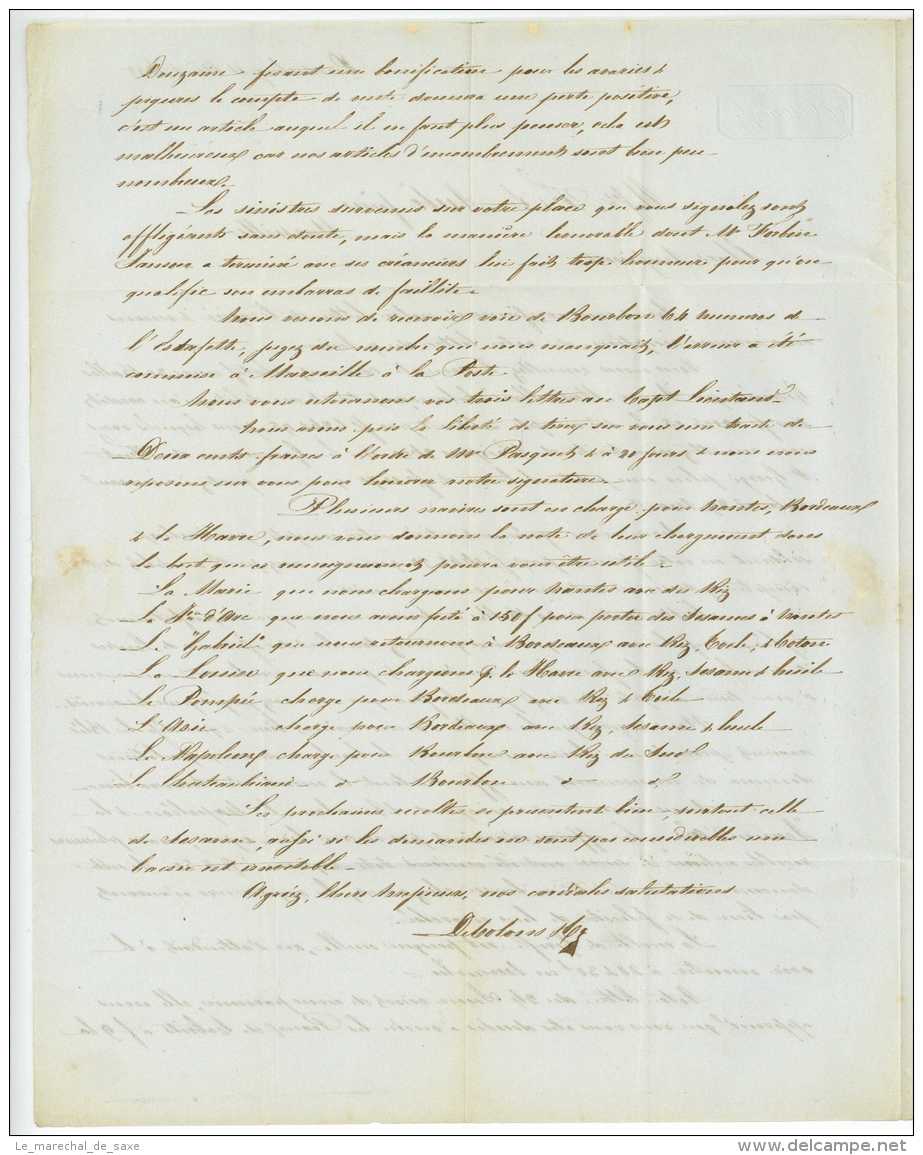 Douzaine faisant une bonification pour les avaries &
piqures le compte de vente donnera une perte positive,
c'est un article auquel il ne faut plus penser, cela est
malheureux car nos articles d'encombrement sont bien peu
nombreux.
Les sinistres survenus sur votre place que vous signalez sont
affligeants sans doute, mais la manière honorable dont Mr Forbin
Janson a terminé avec ses créanciers lui fait trop honneur pour qu'on
qualifie son embarras de faillite.
Nous venons de recevoir voie de Bourbon 64 numéros de
l'Estafette, jugez du nombre qui nous manquait, l'erreur a été
commise à Marseille à la Poste.
Nous vous retournons vos trois lettres au Capt Lieutaud
Nous avons pris la liberté de tirer sur vous une traite de
Deux cents francs à l'ordre de Mr Pasquet & à 20 jours & nous nous
reposons sur vous pour honorer notre signature.
Plusieurs navires sont en charge pour Nantes, Bordeaux
& le Havre, nous vous donnons la note de leur chargement dans
le but que ce renseignement pourra vous être utile.
La Marie que nous chargeons pour Nantes avec des Riz
Le d'Arc que nous avons frété à 150f pour porter des Sésames à Nantes
Le "Gabriel" que nous retournons à Bordeaux avec Riz, Toile, & Coton
La Louise que nous chargeons p. le Havre avec Riz, Sésame & huile
Le Pompée charge pour Bordeaux avec Riz & Toile
L'Asie charge pour Bordeaux avec Riz, Sésame & huile
Le Napoléon charge pour Bourbon avec Riz du Sud
Le Chateaubriand do Bourbon do do
Les prochaines récoltes se présentent bien, surtout celle
de Sésame, aussi si les demandes ne sont pas considérables une
baisse est inévitable.
Agréez, Chers Messieurs, nos cordiales salutations
Decolons &Cie
Le_marechal_de_saxe
www.delcampe.net